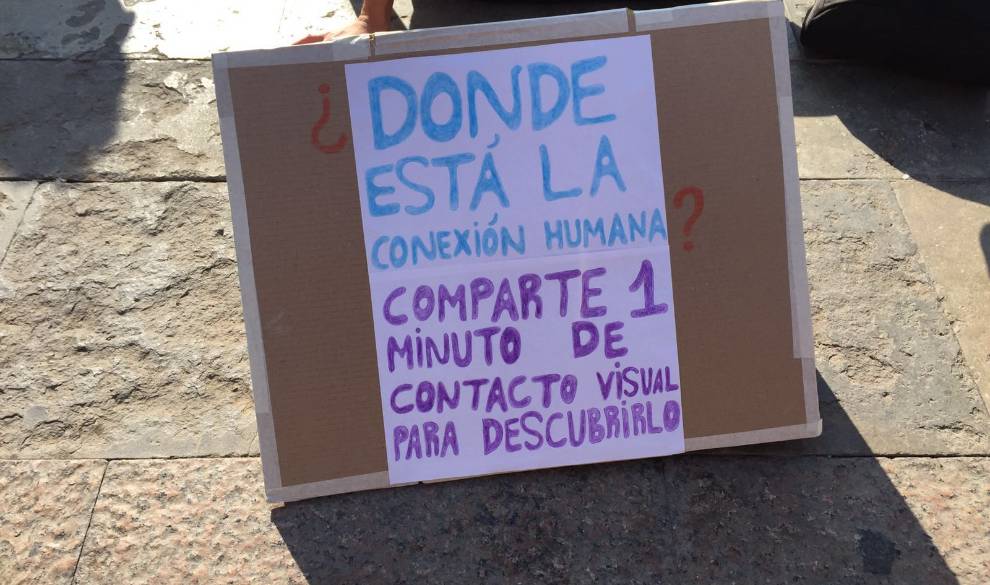 ¿ DONDE
ESTÁ LA
CONEXIÓN HUMANA ?
COMPARTE 1
MINUTO DE
CONTACTO VISUAL
PARA DESCUBRIRLO